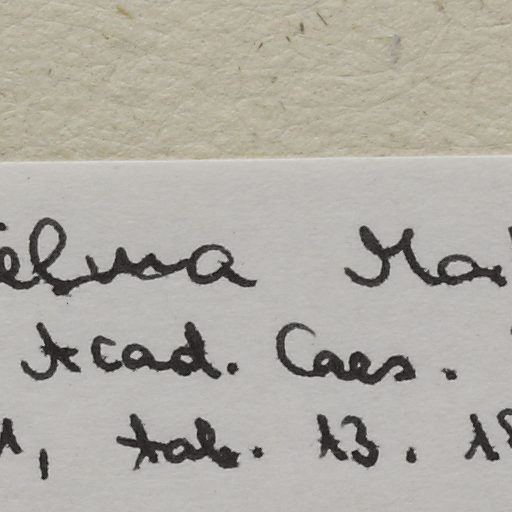 elma Ma
Acad. Caes.
1, tab. 13. 18